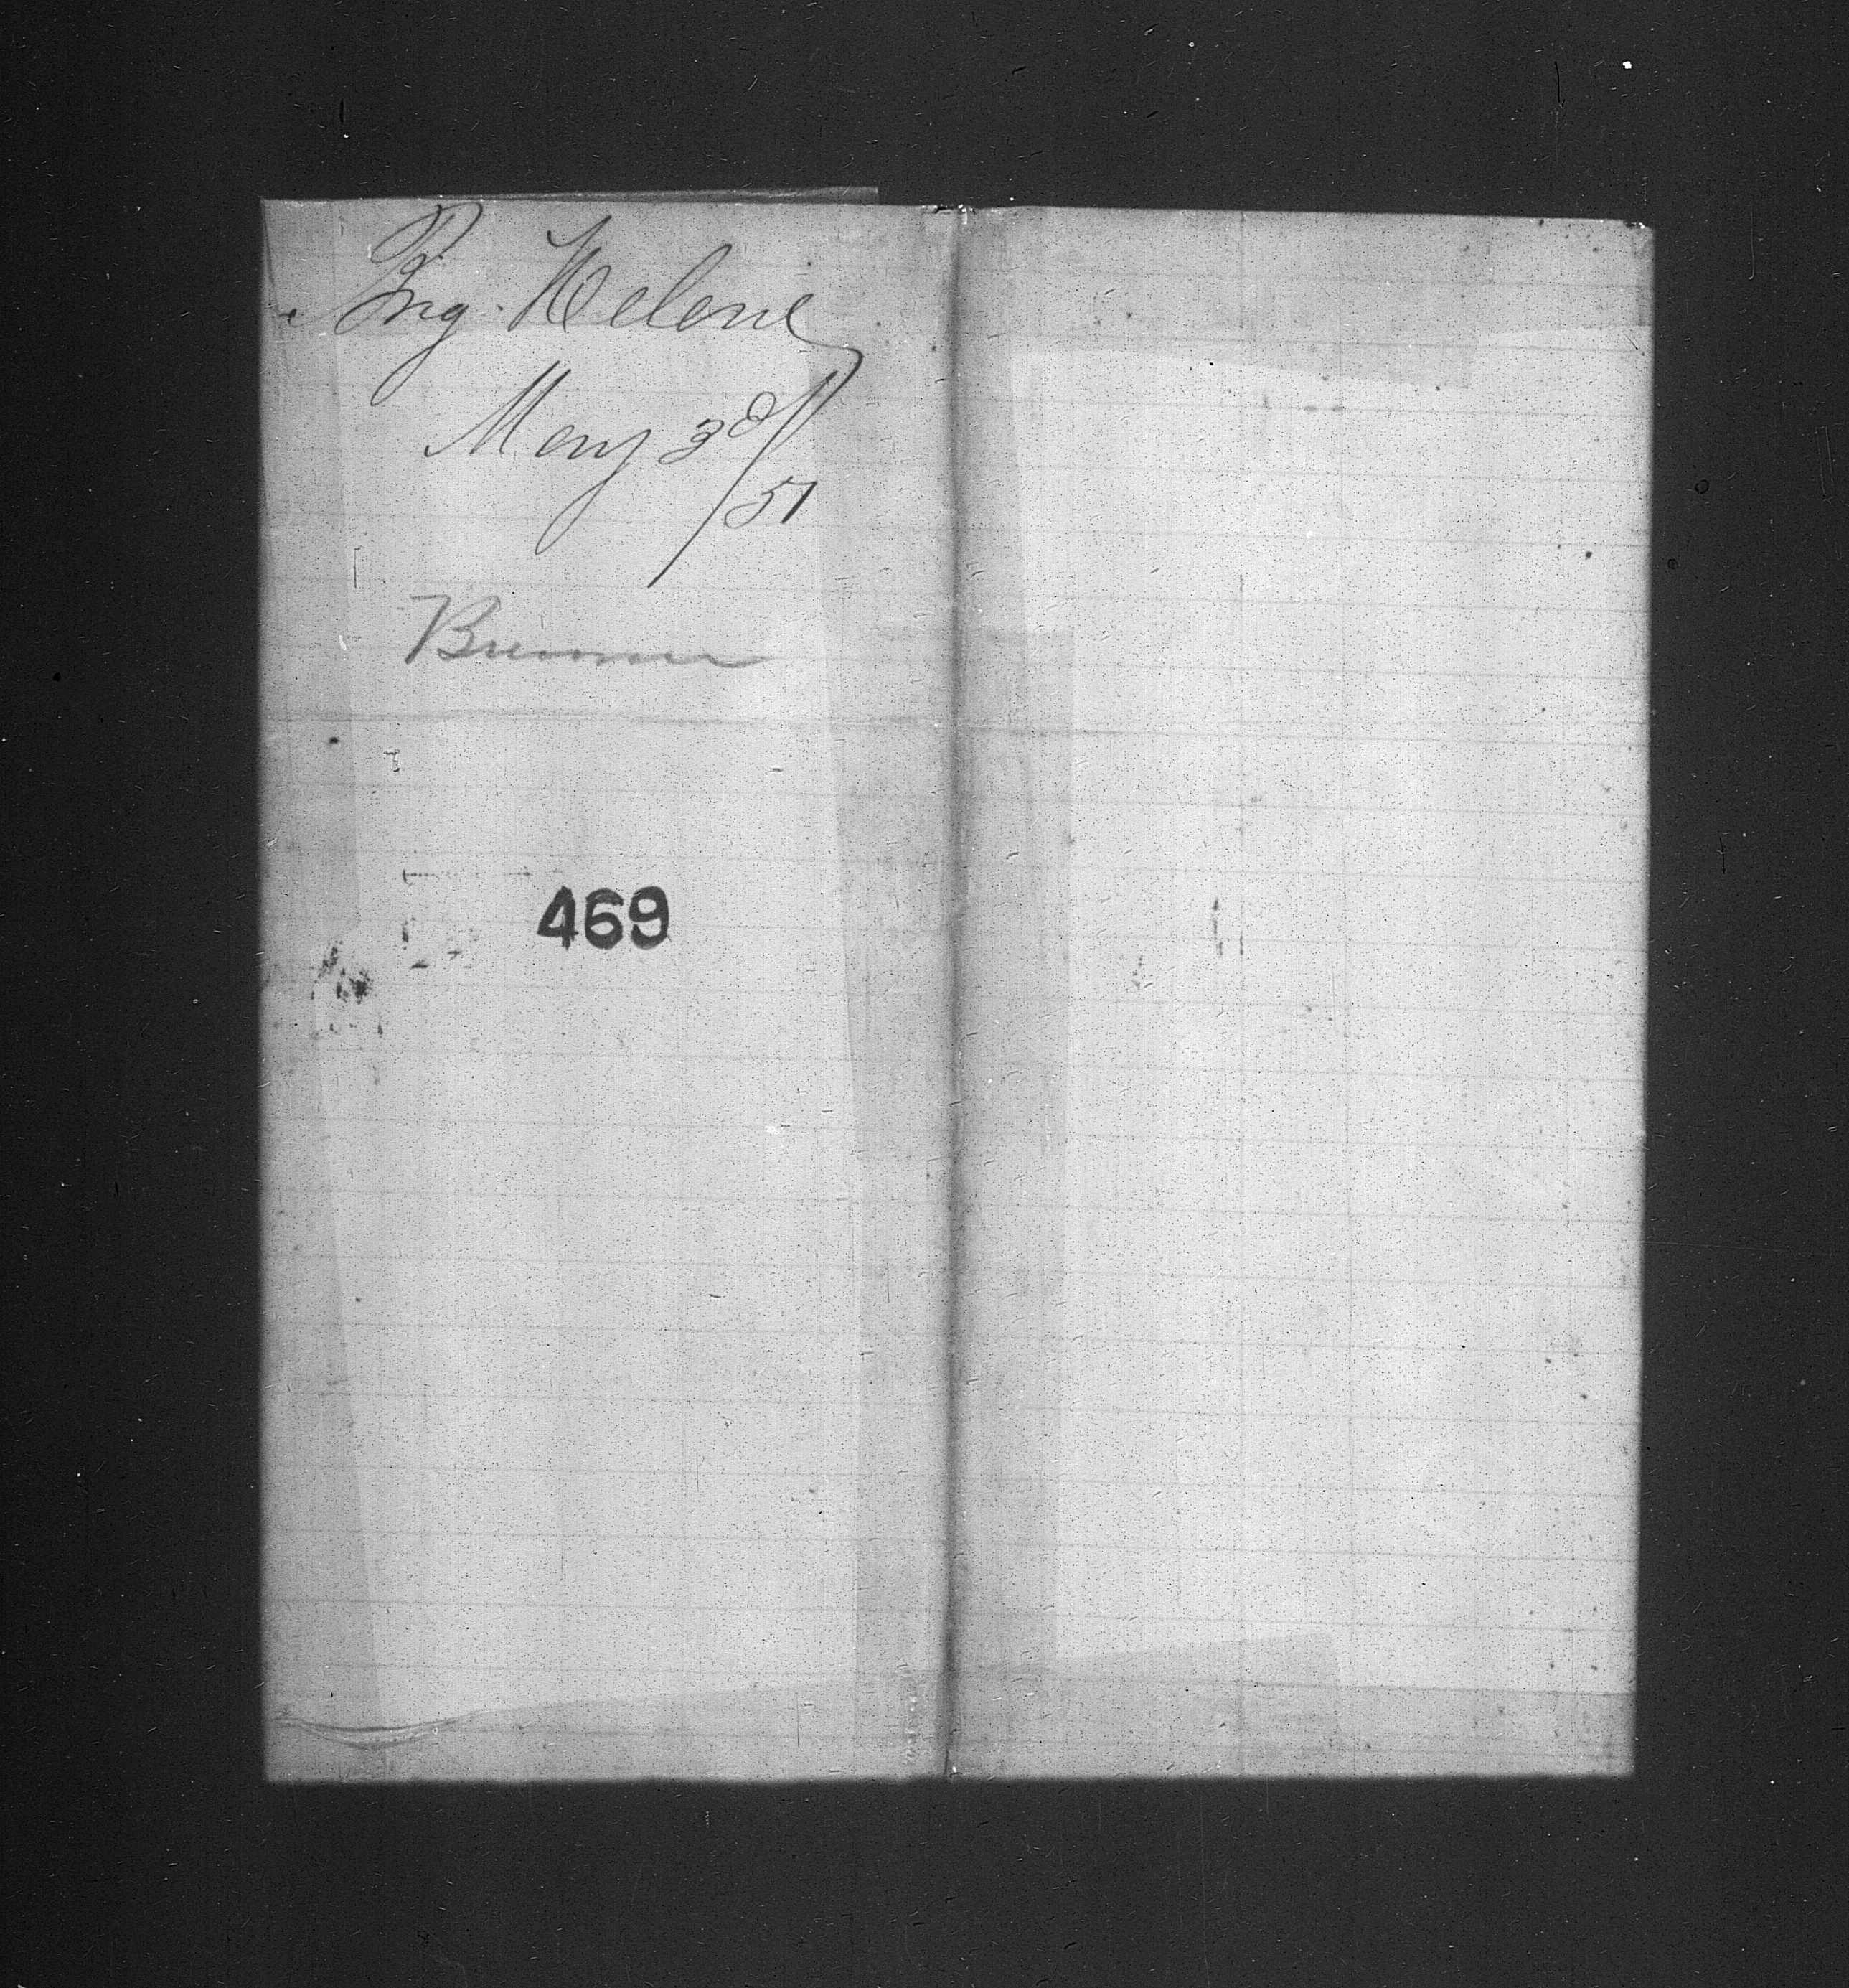 Brig. Helene
May 3d/51
Bremen
469